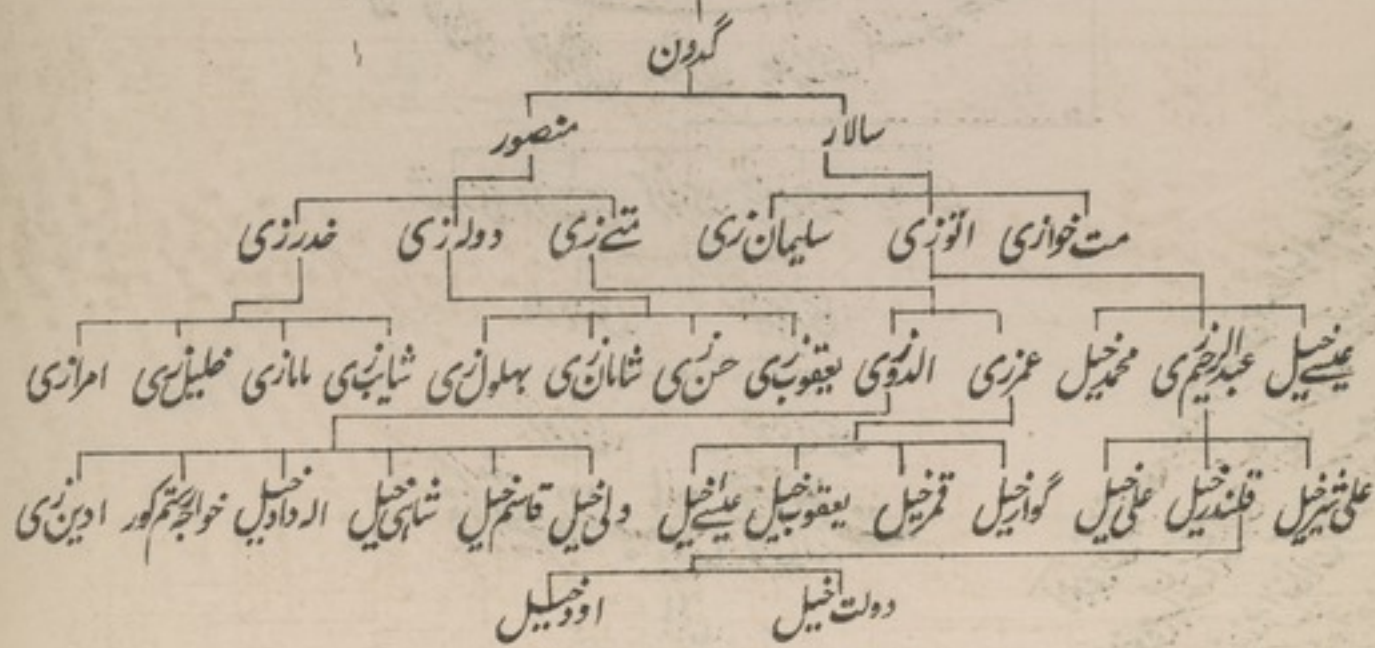 گدون
سالار منصور
مت خوازی اتوزی سلیمان زی متے زی دولہ زی خدرزی
عیسے خیل عبدالرحیم زی محمد خیل عمرزی الدوزی یعقوب زی حسن زی شامان زی بہلول زی شیاب زی مامازی خلیل زی امرازی
علی شیر خیل قلندر خیل علی خیل گواز خیل قمر خیل یعقوب خیل عیسے خیل ولی خیل قاسم خیل شاہی خیل الہ داد خیل خواجہ رستم کور ادین زی
دولت خیل اود خیل